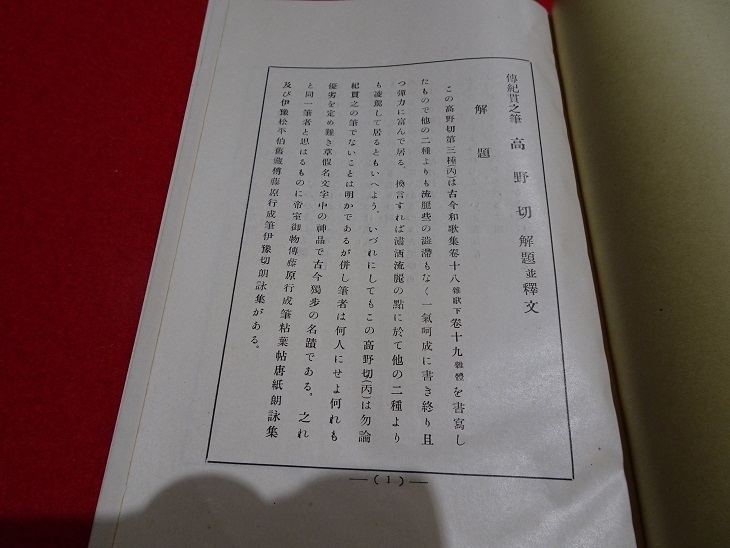 傳紀貫之筆 高野切 解題並釋文
解題
この高野切第三種(丙)は古今和歌集卷十八雜歌下卷十九雜體を書寫し
たもので他の二種よりも流麗些の澁滯もなく一氣呵成に書き終り且
つ彈力に富んで居る。換言すれば瀟洒流麗の點に於て他の二種より
も凌駕して居るともいへよう。いづれにしてもこの高野切(丙)は勿論
紀貫之の筆でないことは明かであるが併し筆者は何人にせよ何れも
優劣を定め難き草假名文字中の神品で古今獨步の名蹟である。之れ
と同一筆者と思はるものに帝室御物傳藤原行成筆粘葉帖唐紙朗詠集
及び伊豫松平伯舊藏傳藤原行成筆伊豫切朗詠集がある。
—(1)—